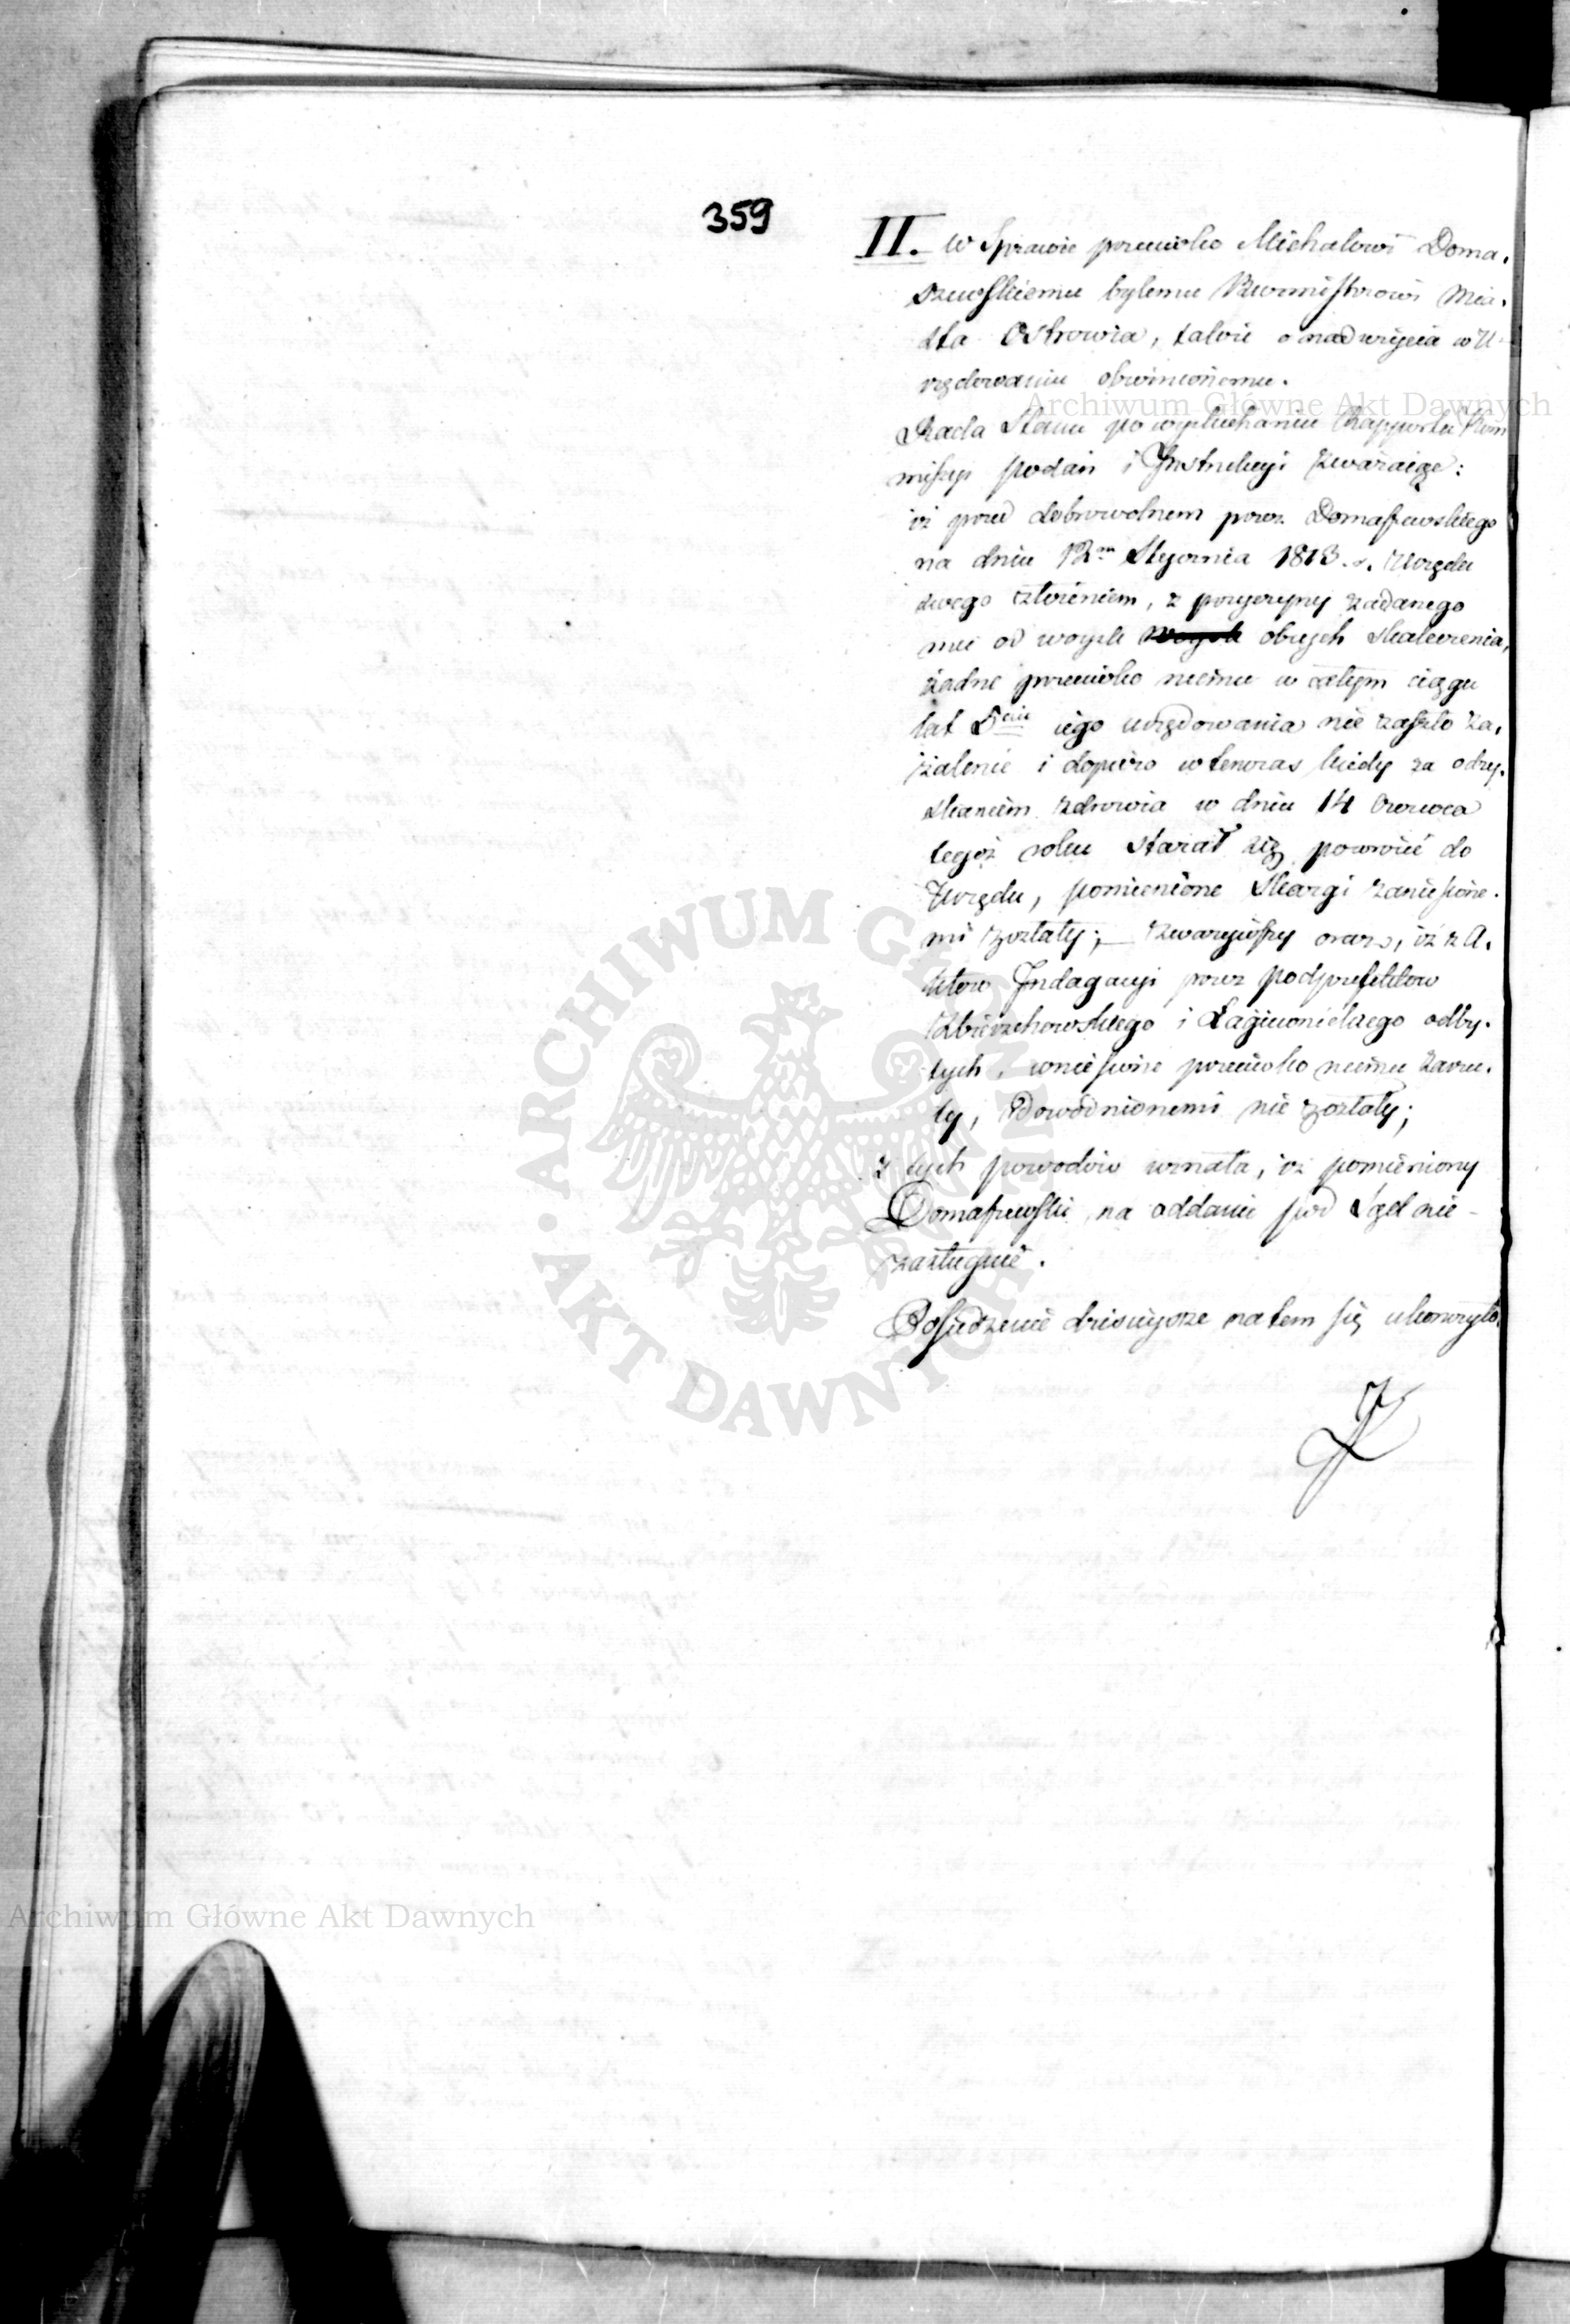 359
II. w Sprawie przeciwko Michałowi Doma-
szewskiemu byłemu Burmistrzowi Mia-
sta Ostrowia, także o nadużycia w U-
rzędowaniu obwinionemu.
Rada Stanu po wysłuchaniu Rapportu Kom
missyi podań i Instrukcyi zważaiąc:
iż przed dobrowolnem przez Domaszewskiego
na dniu 12m Stycznia 1813. r. Urzędu
swego złożeniem, z przyczyny zadanego
mu od woysk obcych skaleczenia,
żadne przeciwko niemu w całym ciągu
lat 5ciu iego urzędowania nie zaszło za-
żalenie i dopiero wtenczas kiedy za odzy-
skaniem zdrowia w dniu 14 Czerwca
tegoż roku starał się powrócić do
Urzędu, pomienione Skargi zaniesione-
mi zostały; – zważywszy oraz, iż z A-
któw Indagacyi przez Podprefektów
Zbierzchowskiego i Łagiewnickiego odby-
tych, wniesione przeciwko niemu zarzu-
ty, udowodnionemi nie zostały;
z tych powodów uznała, iż pomieniony
Domaszewski na oddanie pod Sąd nie-
zasługuie.
Posiedzenie dzisieysze na tem się ukończyło.
Archiwum Główne Akt Dawnych
ARCHIWUM GŁÓWNE AKT DAWNYCH
Archiwum Główne Akt Dawnych